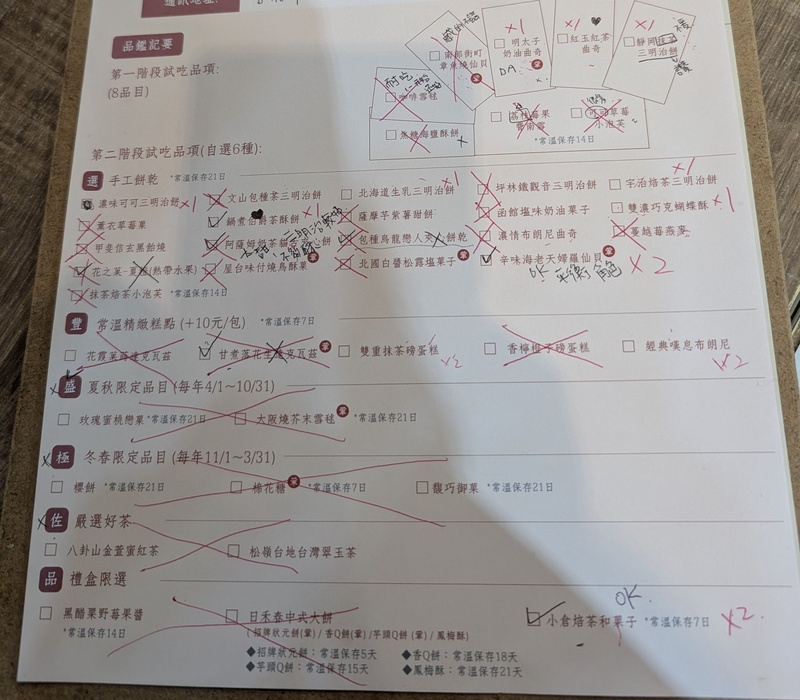 通訊地址:
品鑑記要
第一階段試吃品項:
(8品目)
南部街町
章魚燒仙貝
x1
明太子
奶油曲奇
DA
x1 ♥
紅玉紅茶
曲奇
x1
三明治餅
咖啡雪毬
焦糖海鹽酥餅 x
小泡芙
*常溫保存14日
第二階段試吃品項(自選6種):
選 手工餅乾 *常溫保存21日
濃味可可三明治餅 x1
文山包種茶三明治餅
北海道生乳三明治餅 x1
坪林鐵觀音三明治餅
宇治焙茶三明治餅 x1
薰衣草莓果
鍋煮伯爵茶酥餅 x1
薩摩芋紫薯甜餅
函館塩味奶油菓子
雙濃巧克蝴蝶酥 x1
甲斐信玄黑飴燒
包種烏龍戀人夾心餅乾
濃情布朗尼曲奇
蔓越莓燕麥
花之菓-夏戀(熱帶水果)
屋台味付燒鳥酥菓
北國白醬松露塩菓子
辛味海老天婦羅仙貝 x2
OK
抹茶焙茶小泡芙 *常溫保存14日
豐 常溫精緻糕點 (+10元/包) *常溫保存7日
花霞茉荷達克瓦茲
甘煮落花生達克瓦茲
雙重抹茶磅蛋糕 x2
香檸橙子磅蛋糕
經典嘆息布朗尼 x2
x 盛 夏秋限定品目 (每年4/1~10/31)
玫瑰蜜桃戀菓 *常溫保存21日
大阪燒芥末雪毬 *常溫保存21日
x 極 冬春限定品目 (每年11/1~3/31)
櫻餅 *常溫保存21日
棉花糖 *常溫保存7日
馥巧御菓 *常溫保存21日
x 佐 嚴選好茶
八卦山金萱蜜紅茶
松嶺台地台灣翠玉茶
品 禮盒限選
OK
黑醋栗野莓果醬
*常溫保存14日
日禾春中式大餅
(招牌狀元餅/香Q餅/芋頭Q餅/鳳梨酥)
小倉焙茶和菓子 *常溫保存7日 x2.
◆招牌狀元餅:常溫保存5天 ◆香Q餅:常溫保存18天
◆芋頭Q餅:常溫保存15天 ◆鳳梨酥:常溫保存21天